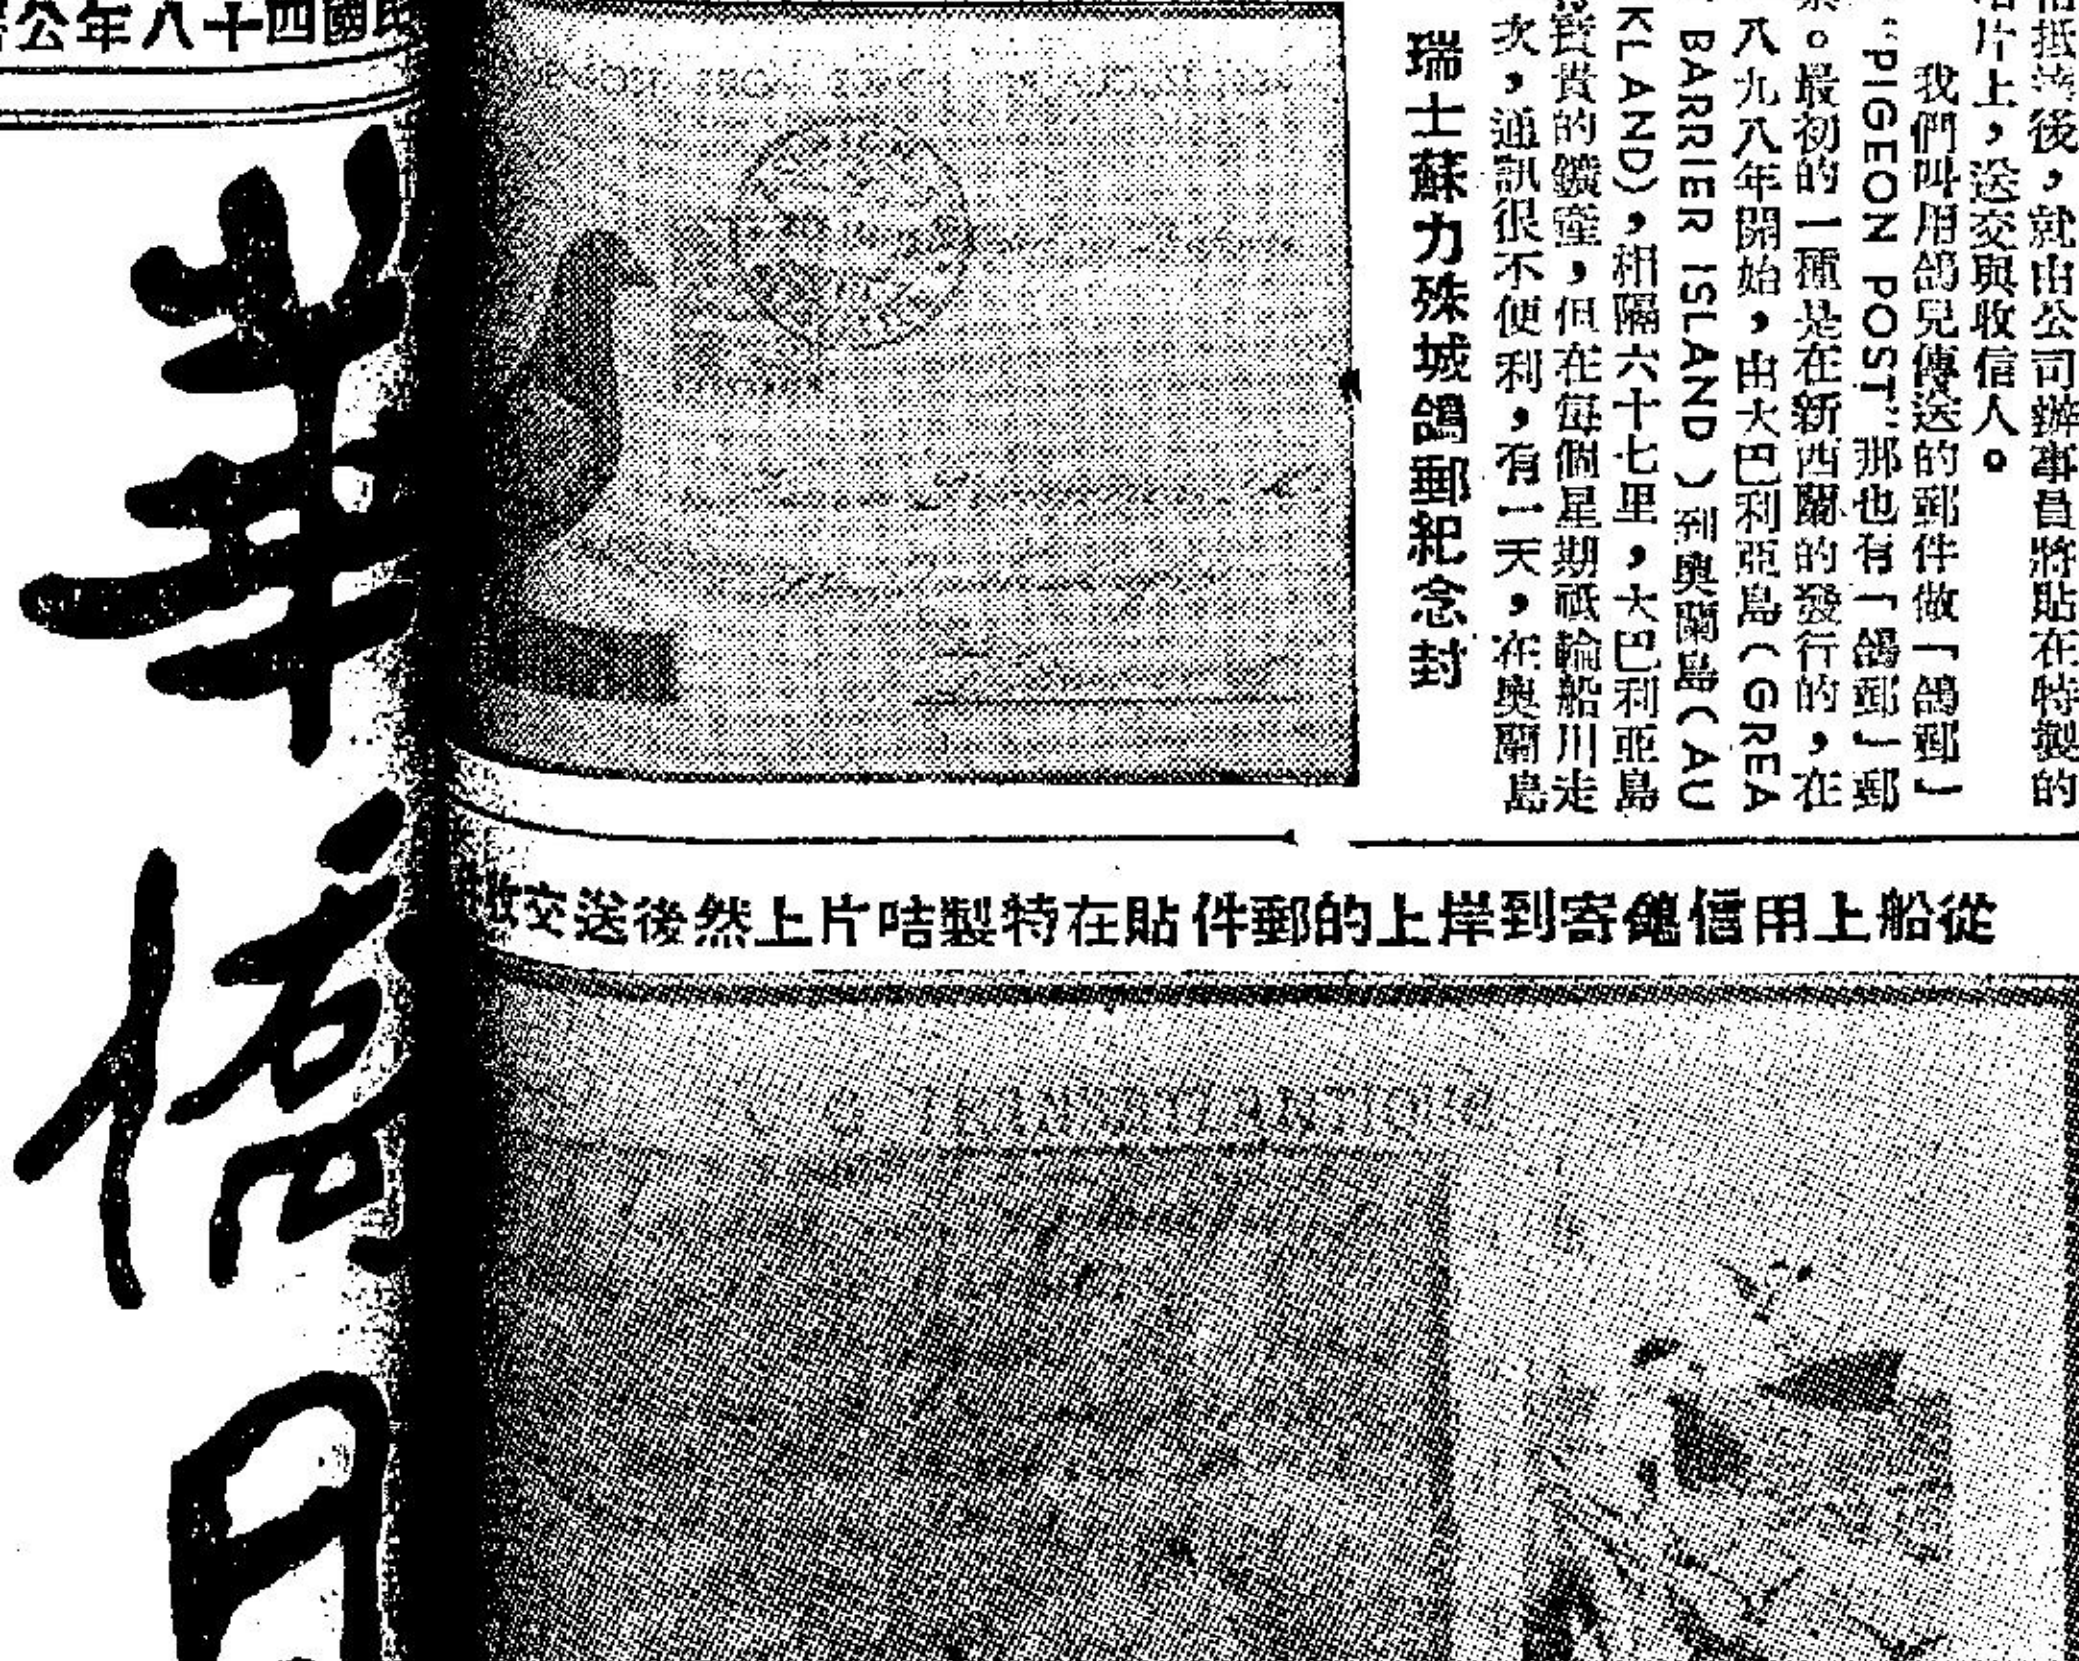 後，就由公司辦事員將貼在特製的
片上，送交與收信人。
我們叫用鴿兒傳送的郵件做「鴿郵」
"PIGEON POST"那也有「鴿郵」郵
票。最初的一種是在新西蘭的發行的，在
八九八年開始，由大巴利亞島（GREA
BARRIER ISLAND）到奧蘭島（AU
KLAND），相隔六十七里，大巴利亞島
寶貴的鑛產，但在每個星期祇輪船川走
次，通訊很不便利，有一天，在奧蘭島
瑞士蘇力殊城鴿郵紀念封
從船上用信鴿寄到岸上的郵件貼在特製咭片上然後送交收
C G TRANSATLANTIQUE
民國四十八年公
華僑日